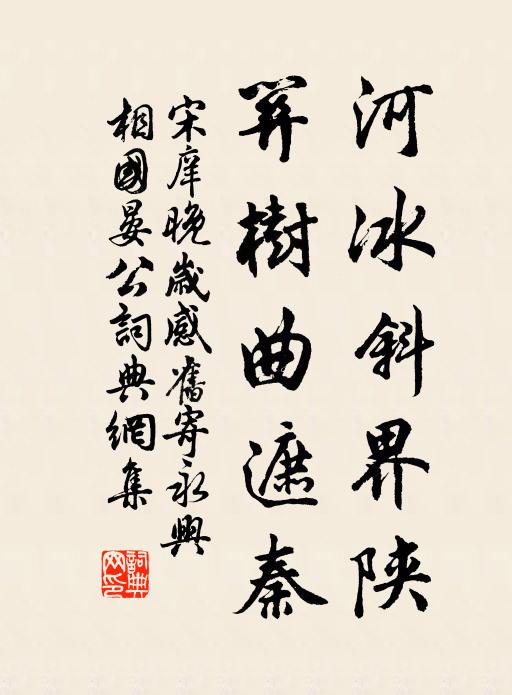 河冰斜界陕
笄樹曲遮秦
宋庠晚歲感舊寄永興
相國晏公詞典網集
詞典網印